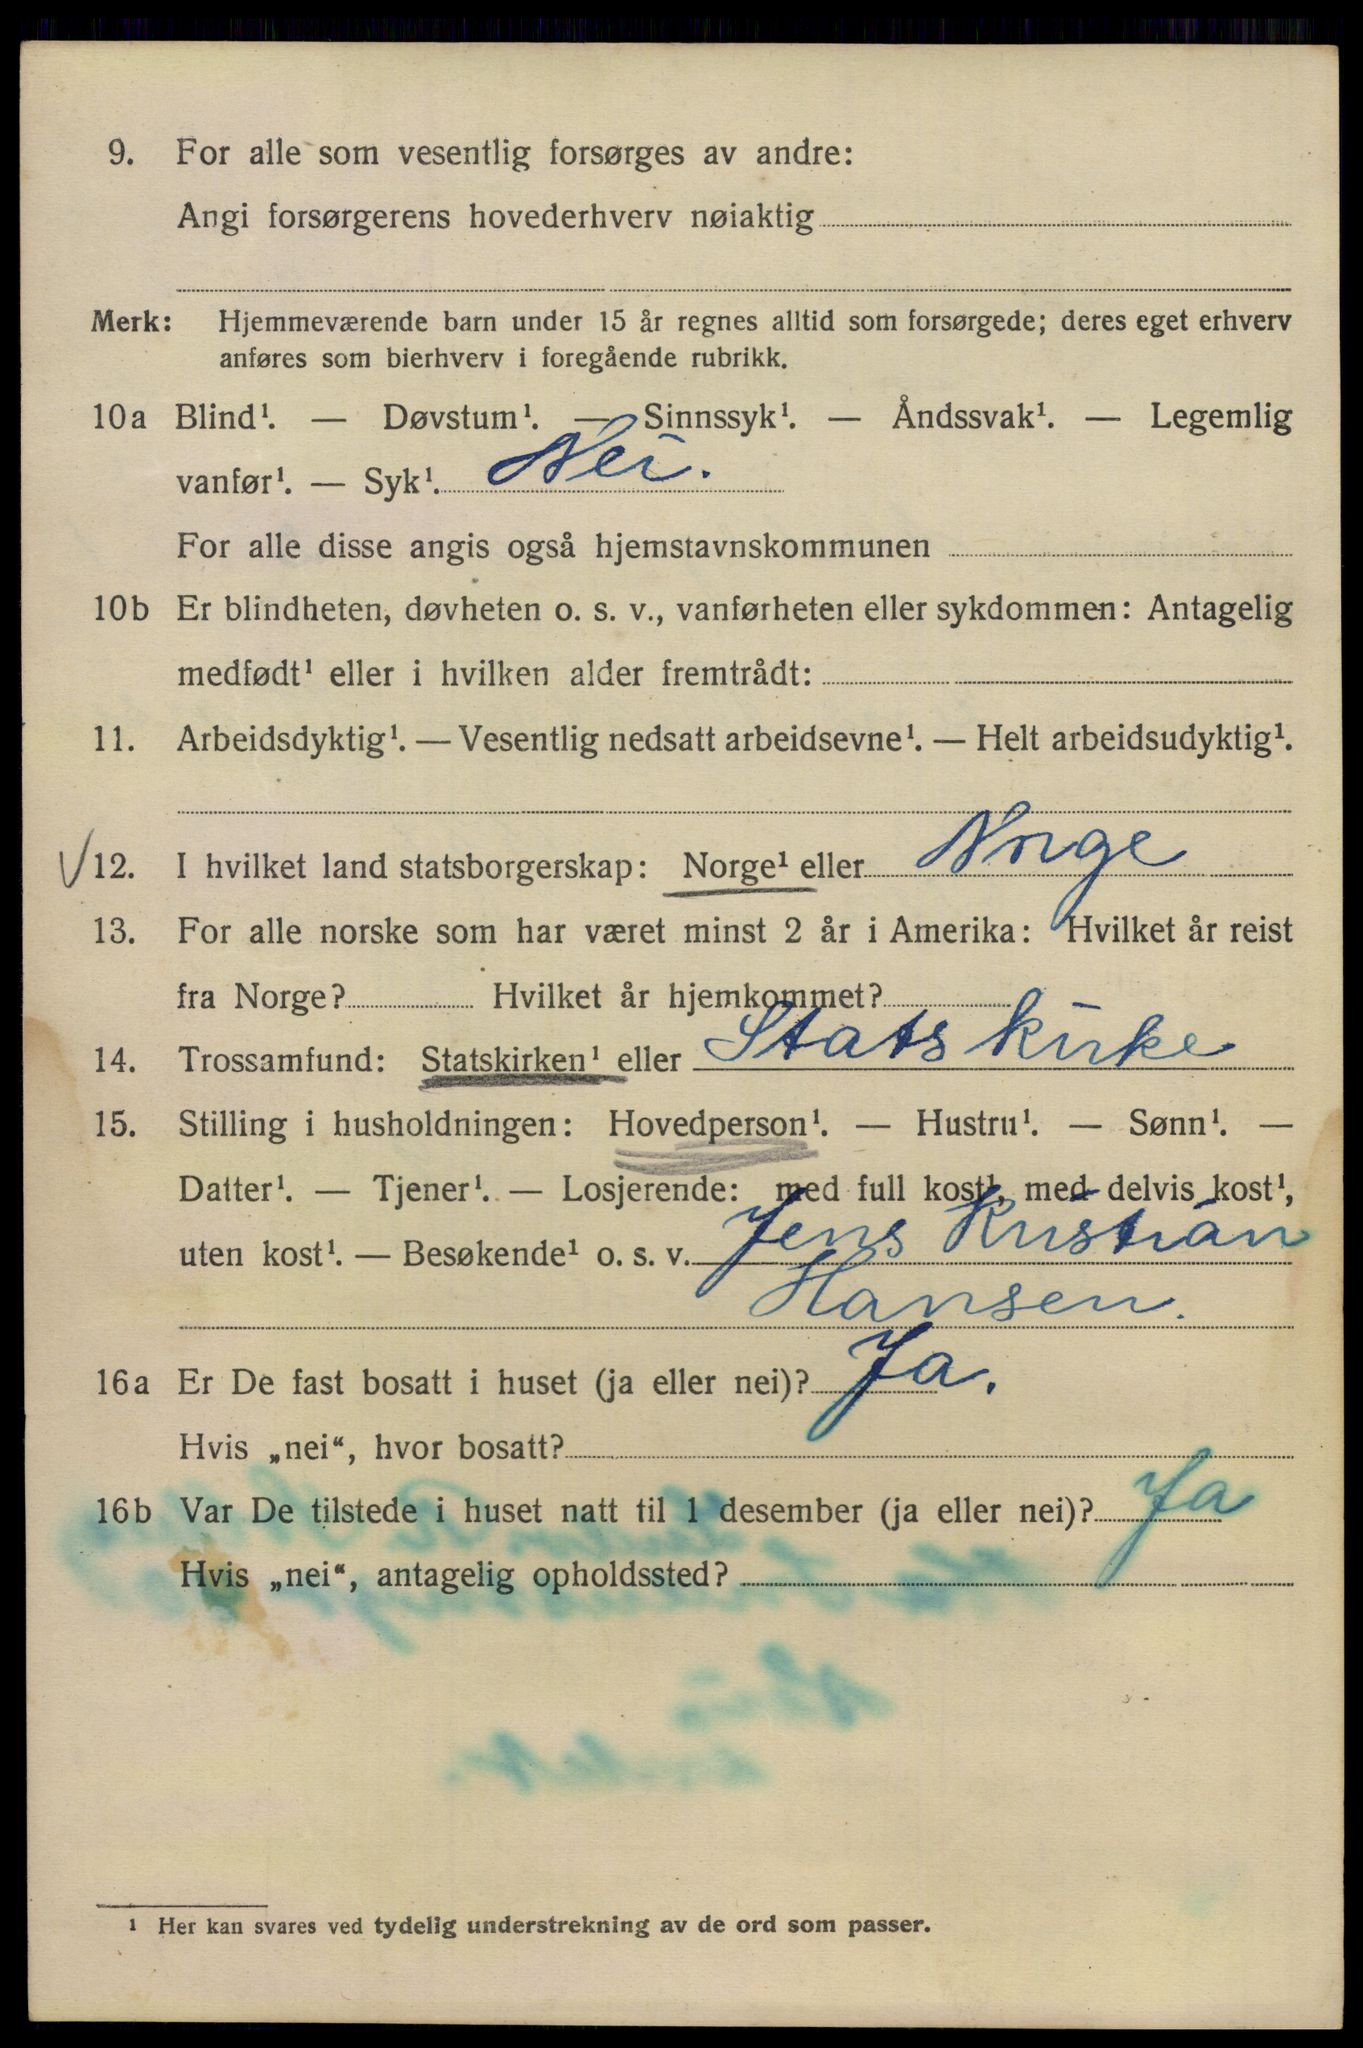 9. For alle som vesentlig forsørges av andre:
Angi forsørgerens hovederhverv nøiaktig
Merk: Hjemmeværende barn under 15 år regnes alltid som forsørgede; deres eget erhverv
anføres som bierhverv i foregående rubrikk.
10a Blind¹. — Døvstum¹. — Sinnssyk¹. — Åndssvak¹. — Legemlig
vanfør¹. — Syk¹. Nei.
For alle disse angis også hjemstavnskommunen
10b Er blindheten, døvheten o. s. v., vanførheten eller sykdommen: Antagelig
medfødt¹ eller i hvilken alder fremtrådt:
11. Arbeidsdyktig¹. — Vesentlig nedsatt arbeidsevne¹. — Helt arbeidsudyktig¹.
12. I hvilket land statsborgerskap: Norge¹ eller Norge
13. For alle norske som har været minst 2 år i Amerika: Hvilket år reist
fra Norge? Hvilket år hjemkommet?
14. Trossamfund: Statskirken¹ eller Stats kirke
15. Stilling i husholdningen: Hovedperson¹. — Hustru¹. — Sønn¹. —
Datter¹. — Tjener¹. — Losjerende: med full kost¹, med delvis kost¹,
uten kost¹. — Besøkende¹ o. s. v. Jens Kristian
Hansen.
16a Er De fast bosatt i huset (ja eller nei)? Ja.
Hvis „nei“, hvor bosatt?
16b Var De tilstede i huset natt til 1 desember (ja eller nei)? Ja
Hvis „nei“, antagelig opholdssted?
¹ Her kan svares ved tydelig understrekning av de ord som passer.